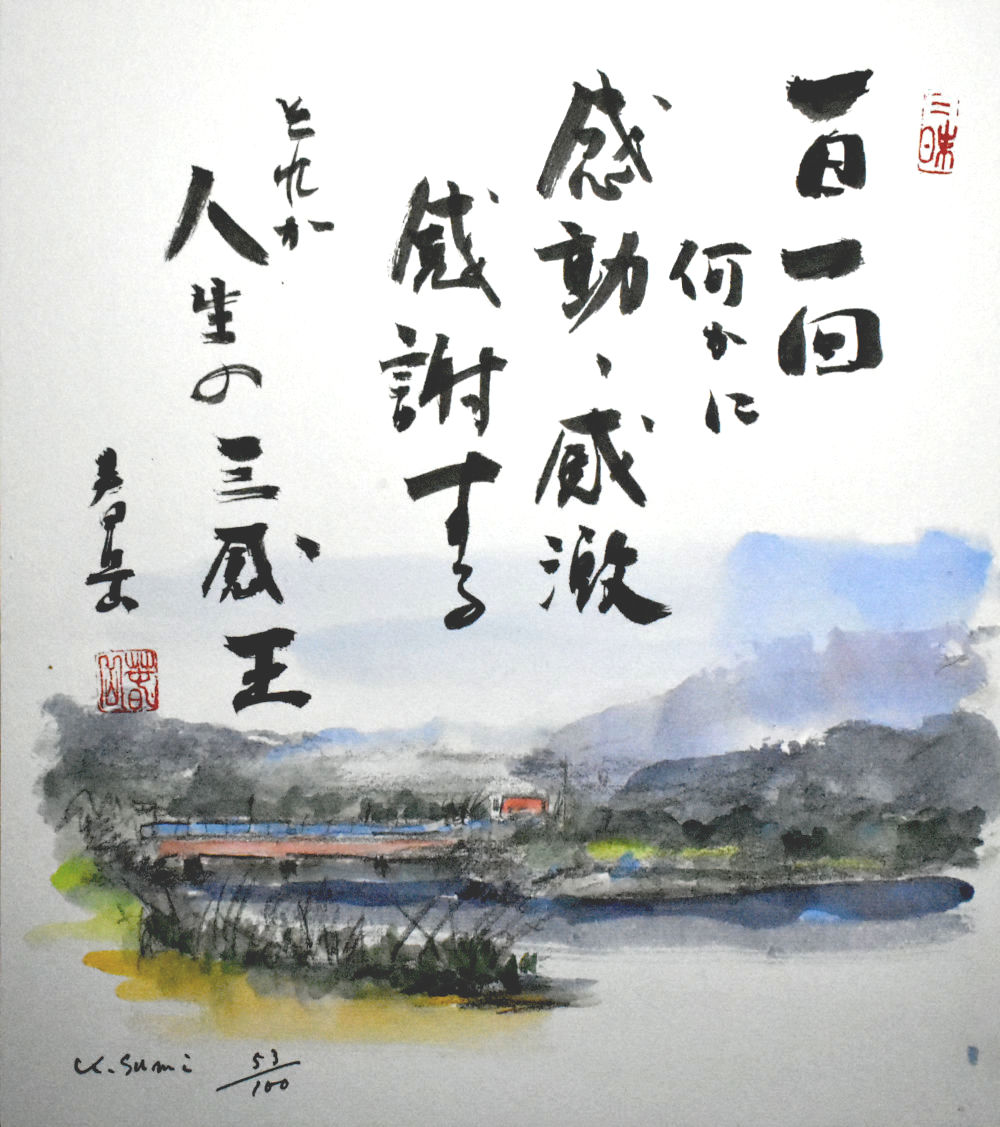 三昧
一日一回
何かに
感動、感激
感謝する
それが
人生の三感王
春岳
K. Sumi 53/100